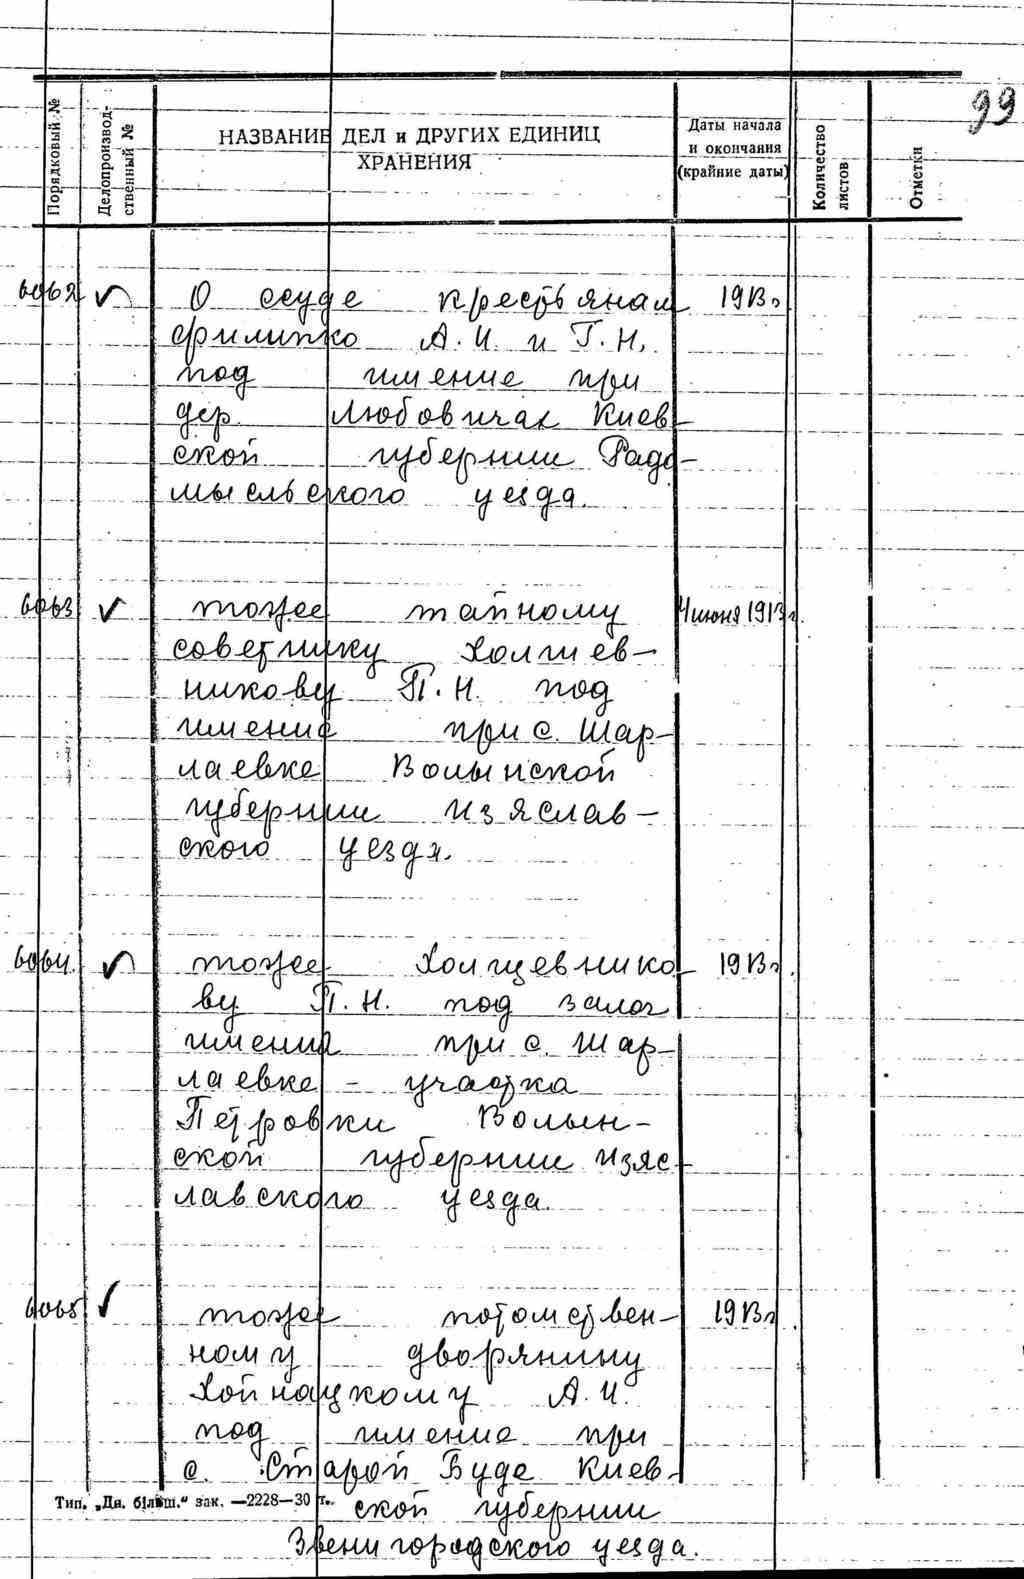 99
Порядковый №
Делопроизвод-
ственный №
НАЗВАНИЕ ДЕЛ и ДРУГИХ ЕДИНИЦ
ХРАНЕНИЯ
Даты начала
и окончания
(крайние даты)
Количество
листов
Отметки
6062 О ссуде крестьянам 1913 г
Филипко А.И. и Г.Н.
под имение при
дер. Любовичах Киев-
ской губернии Радо-
мысльского уезда.
6063 тоже тайному 4 июня 1913 г.
советнику Холщев-
никову П.Н. под
имение при с. Шар-
лаевке Волынской
губернии Изяслав-
ского уезда.
6064. тоже Холщевнико- 1913 г.
ву П.Н. под залог
имения при с. Шар-
лаевке - участка
Петровки Волын-
ской губернии Изяс-
лавского уезда.
6065 тоже потомствен- 1913 г
ному дворянину
Хойнацкому А.И.
под имение при
с. Старой Буде Киев-
Тип. „Дн. більш." зак. —2228—30 т..
ской губернии
Звенигородского уезда.